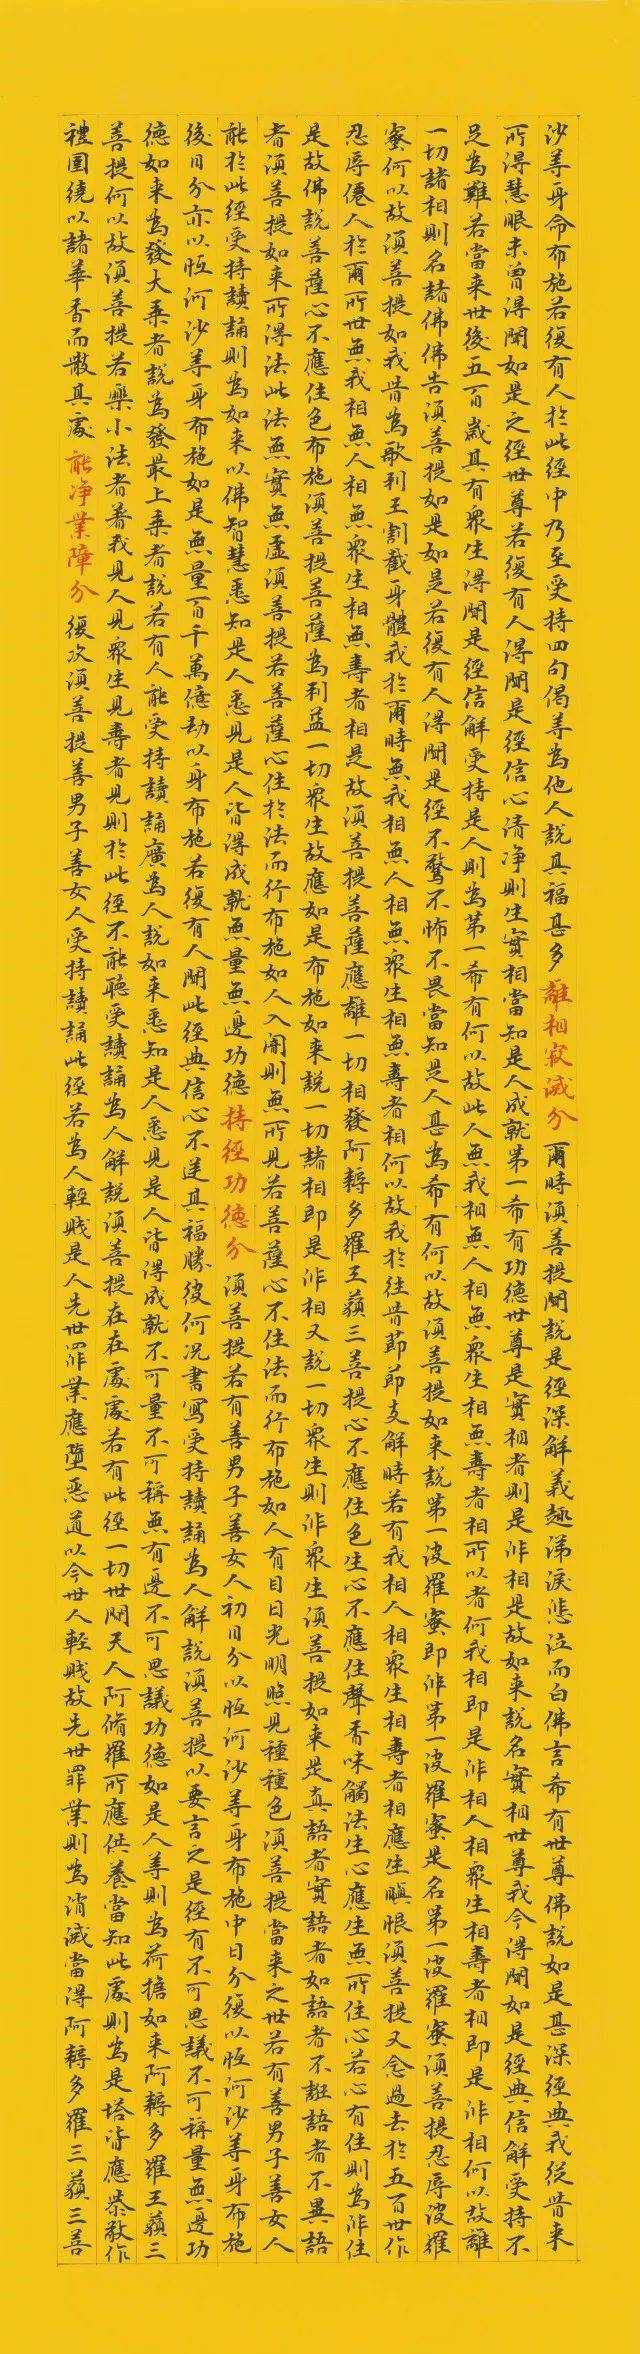 沙等身命布施若復有人於此經中乃至受持四句偈等為他人說其福甚多離相寂滅分爾時須菩提聞說是經深解義趣涕淚悲泣而白佛言希有世尊佛說如是甚深經典我從昔來
所得慧眼未曾得聞如是之經世尊若復有人得聞是經信心清淨則生實相當知是人成就第一希有功德世尊是實相者則是非相是故如來說名實相世尊我今得聞如是經典信解受持不
足為難若當來世後五百歲其有眾生得聞是經信解受持是人則為第一希有何以故此人無我相無人相無眾生相無壽者相所以者何我相即是非相人相眾生相壽者相即是非相何以故離
一切諸相則名諸佛佛告須菩提如是如是若復有人得聞是經不驚不怖不畏當知是人甚為希有何以故須菩提如來說第一波羅蜜即非第一波羅蜜是名第一波羅蜜須菩提忍辱波羅
蜜何以故須菩提如我昔為歌利王割截身體我於爾時無我相無人相無眾生相無壽者相何以故我於往昔節節支解時若有我相人相眾生相壽者相應生瞋恨須菩提又念過去於五百世作
忍辱僊人於爾所世無我相無人相無眾生相無壽者相是故須菩提菩薩應離一切相發阿耨多羅三藐三菩提心不應住色生心不應住聲香味觸法生心應生無所住心若心有住則為非住
是故佛說菩薩心不應住色布施須菩提菩薩為利益一切眾生故應如是布施如來說一切諸相即是非相又說一切眾生則非眾生須菩提如來是真語者實語者如語者不誑語者不異語
者須菩提如來所得法此法無實無虛須菩提若菩薩心住於法而行布施如人入闇則無所見若菩薩心不住法而行布施如人有目日光明照見種種色須菩提當來之世若有善男子善女人
能於此經受持讀誦則為如來以佛智慧悉知是人悉見是人皆得成就無量無邊功德持經功德分須菩提若有善男子善女人初日分以恆河沙等身布施中日分復以恆河沙等身布施
後日分亦以恆河沙等身布施如是無量百千萬億劫以身布施若復有人聞此經典信心不逆其福勝彼何況書寫受持讀誦為人解說須菩提以要言之是經有不可思議不可稱量無邊功
德如來為發大乘者說為發最上乘者說若有人能受持讀誦廣為人說如來悉知是人悉見是人皆得成就不可量不可稱無有邊不可思議功德如是人等則為荷擔如來阿耨多羅三藐三
菩提何以故須菩提若樂小法者著我見人見眾生見壽者見則於此經不能聽受讀誦為人解說須菩提在在處處若有此經一切世間天人阿脩羅所應供養當知此處則為是塔皆應恭敬作
禮圍繞以諸華香而散其處能淨業障分復次須菩提善男子善女人受持讀誦此經若為人輕賤是人先世罪業應墮惡道以今世人輕賤故先世罪業則為消滅當得阿耨多羅三藐三菩